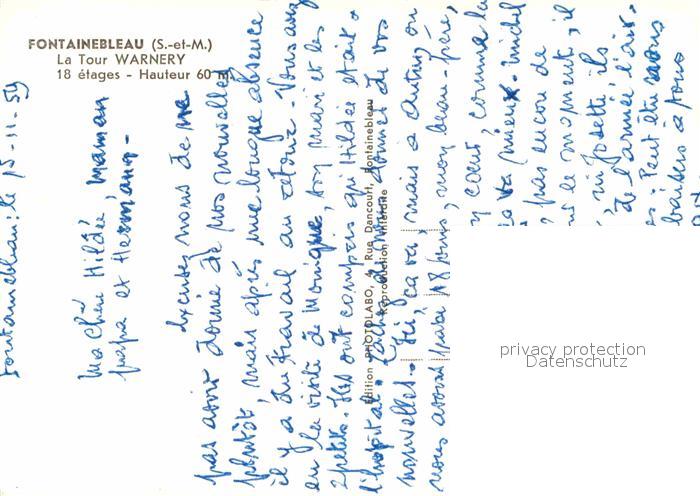 FONTAINEBLEAU (S.-et-M.)
La Tour WARNERY
18 étages - Hauteur 60 m.
Edition PHOTOLABO, 4, Rue Dancourt, Fontainebleau
Reproduction interdite
Fontainebleau, le 15-11-59
Ma Chère Hildée, maman
papa et Hermann -
Excusez nous de ne
pas avoir donné de nos nouvelles
plutôt, mais après une longue absence
il y a du travail au retour - Vous avez
eu la visite de Monique, son mari et les
2 petits. Ils ont compris qu'Hildée était à
l'hôpital. nous donner de vos
nouvelles. Ici, ça va, mais à Autun, on
nous avons 18 jours, mon beau-père,
cœur, comme la
va mieux. michel
pas encore de
le moment, il
Josette, ils
de l'armée l'air.
Peut être
baisers à tous
privacy protection
Datenschutz